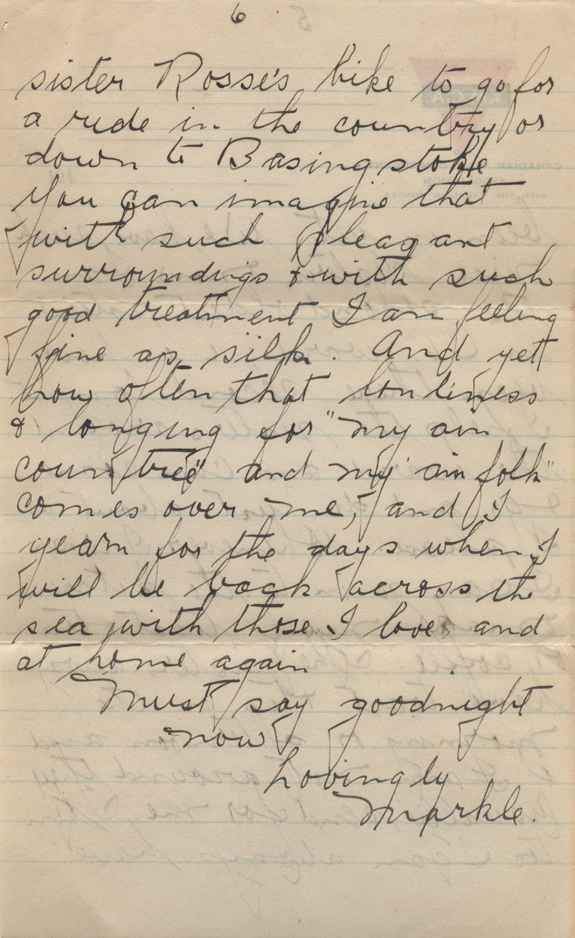 6
sister Rosse's bike to go for
a ride in the country or
down to Basingstoke
You can imagine that
with such pleasant
surroundings & with such
good treatment I am feeling
fine as silk. And yet
how often that lonliness
& longing for "my ain
countree and my ain folk"
comes over me, and I
yearn for the days when I
will be back across the
sea with those I love and
at home again
Must say goodnight
now
Lovingly
Markle.